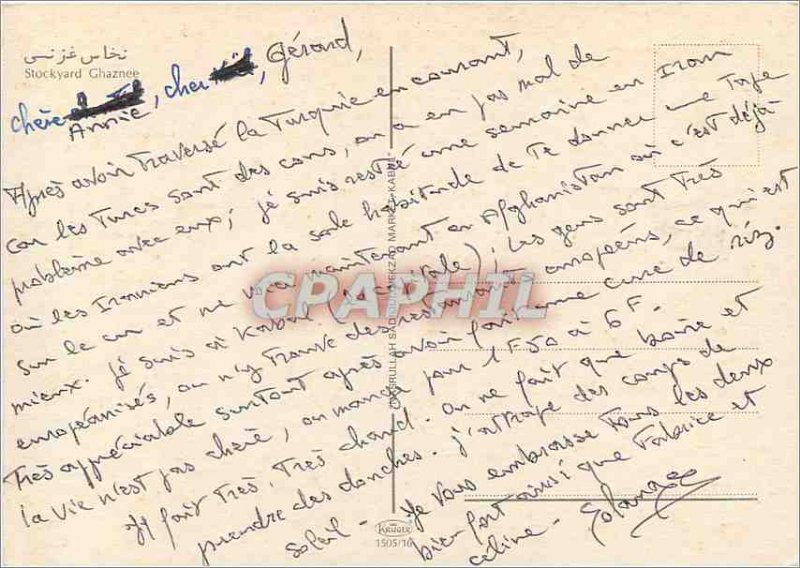 نخاس غزنی
Stockyard Ghaznee
chère Annie, cher Gérard,
Après avoir traversé la Turquie en courant,
car les Turcs sont des cons, on a eu pas mal de
problème avec eux; je suis resté une semaine en Iran
où les Iraniens ont la sale habitude de te donner une tape
sur le cul et me voici maintenant en Afghanistan où c'est déjà
mieux. Je suis à Kabul (la capitale); les gens sont très
européanisés, on n'y trouve des restaurants européens, ce qui est
très appréciable surtout après avoir fait une cure de riz.
la vie n'est pas chère, on mange pour 1F50 à 6F.
Il fait très, très chaud. On ne fait que boire et
prendre des douches. J'attrape des coups de
soleil - Je vous embrasse tous les deux
bien fort ainsi que Fabrice et
céline -
Solange
NASRULLAH MARKET KABUL
CPAPHIL
KRÜGER
1505/16